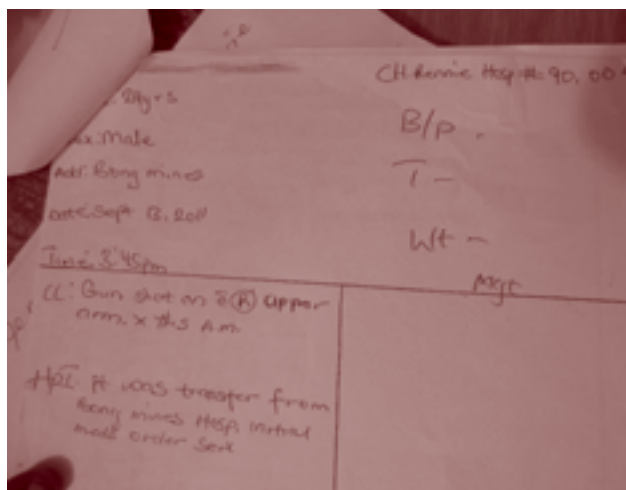 CH Rennie Hosp #: 90,00
29yrs
B/P -
Sex: Male
Add: Bong mines
T -
Date: Sept 13, 2011
Wt -
Time: 3:45pm
Mgt
CC: Gun shot on (R) upper
arm. x this A.M.
HPI: pt was transfer from
Bong mines Hosp,
order